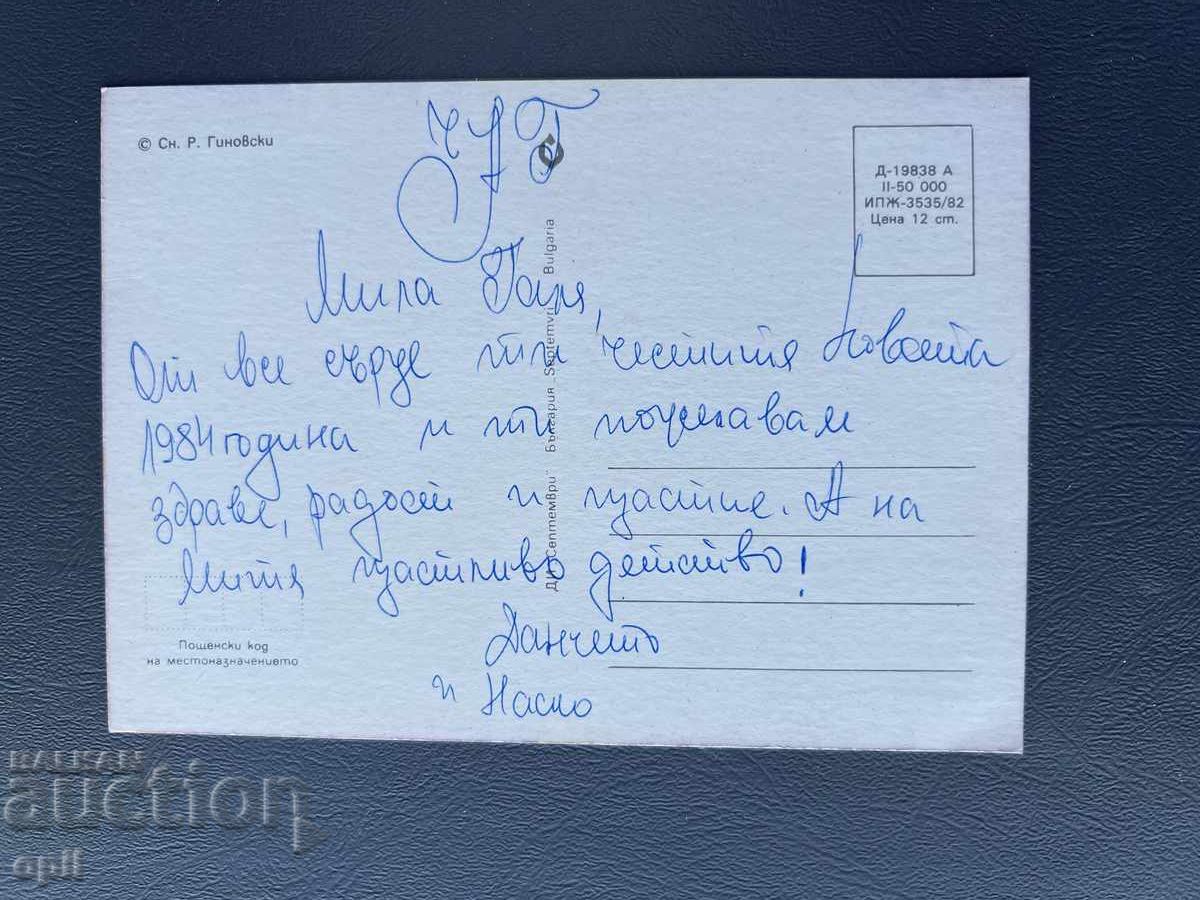 © Сн. Р. Гиновски
ЧНГ
Д-19838 А
II-50 000
ИПЖ-3535/82
Цена 12 ст.
Мила Галя,
От все сърце ти честитя Новата
1984 година и ти пожелавам
здраве, радост и щастие. А на
Митя щастливо детство!
Данчето
и Наско
ДИ „Септември" България „Septemvri" Bulgaria
Пощенски код
на местоназначението
BALKAN
auction